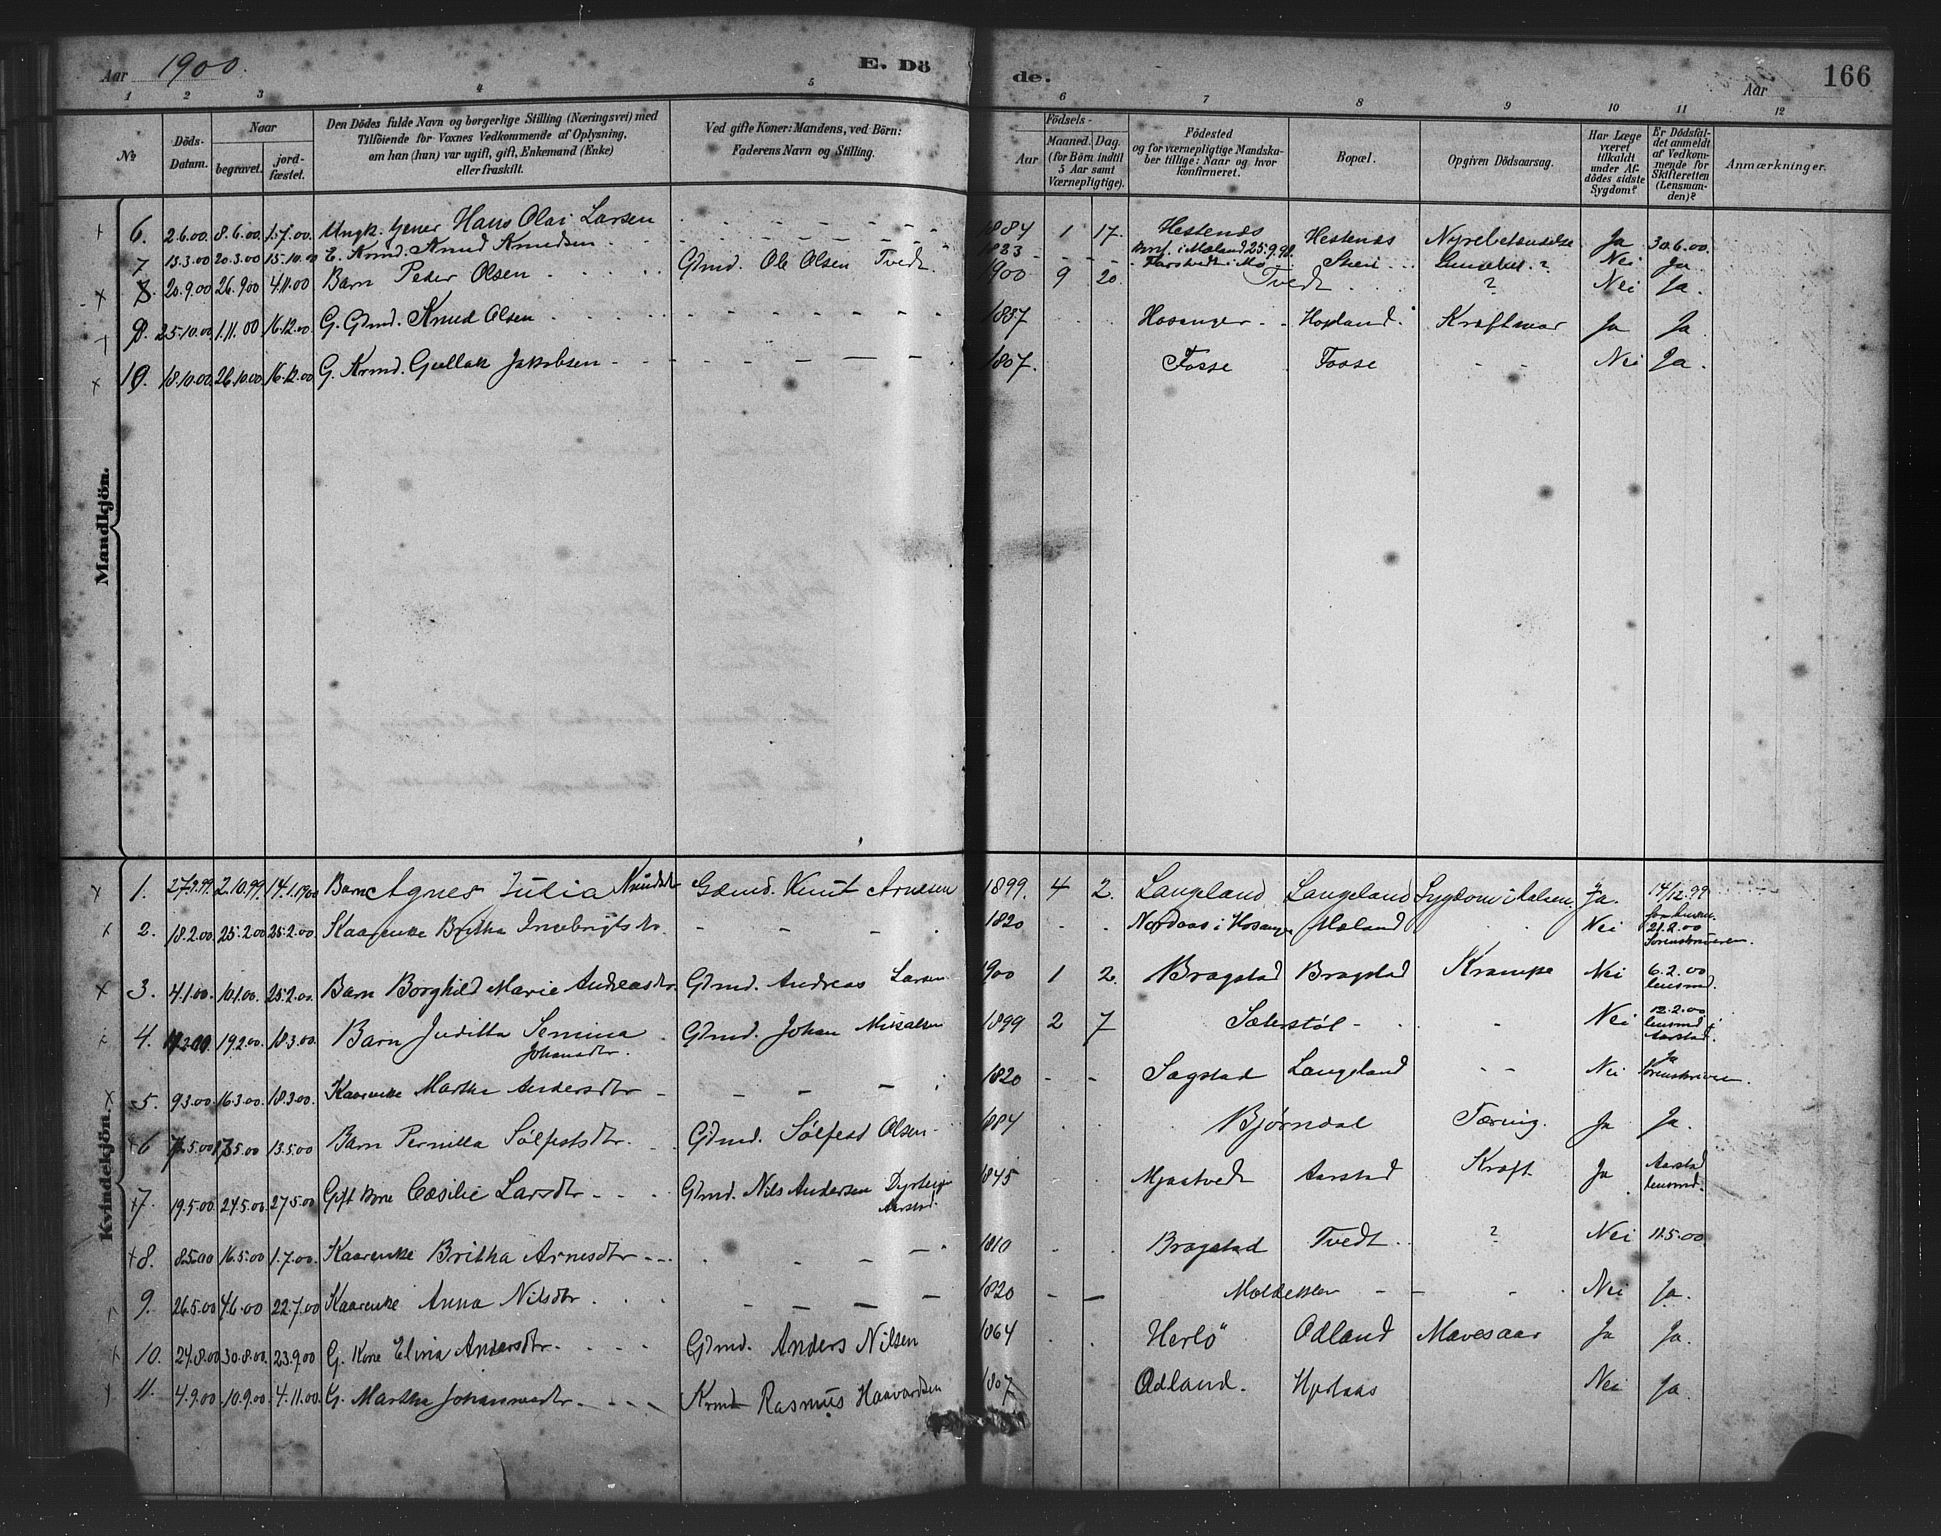 Aar 1900. E. Dö de. Aar 166
1 2 3 4 5 6 7 8 9 10 11 12
№
Döds-Datum.
Naar
begravet.
jordfæstet.
Den Dödes fulde Navn og borgerlige Stilling (Næringsvei) med
Tilföiende for Voxnes Vedkommende af Oplysning,
om han (hun) var ugift, gift, Enkemand (Enke)
eller fraskilt.
Ved gifte Koner: Mandens, ved Börn:
Faderens Navn og Stilling.
Födsels-
Aar
Maaned. Dag.
(for Börn indtil
5 Aar samt
Værnepligtige).
Födested
og for værnepligtige Mandska-
ber tillige: Naar og hvor
konfirmeret.
Bopæl.
Opgiven Dödsaarsag.
Har Læge
været
tilkaldt
under Af-
dödes sidste
Sygdom?
Er Dödsfal-
det anmeldt
af Vedkom-
mende for
Skifteretten
(Lensman-
den)?
Anmærkninger.
Mandkjön.
6. 2.6.00. 8.6.00. 1.7.00. Ungk. Hans Olai Larsen 1884 1 17. Hestenæs Hestenæs Nyrebetændelse Ja 30.6.00.
Konf. i Mæland 25.9.98.
7. 13.3.00 20.3.00 15.10.00 E. Krmd. Knud Knudsen 1823 i Mo Nei Ja.
8. 20.9.00 26.9.00 4.11.00 Barn Peder Olsen Gmd. Ole Olsen Tvedt 1900 9 20. Tvedt ? Nei Ja.
9. 25.10.00 1.11.00 16.12.00. G. Gdmd. Knud Olsen 1837 Hosanger Hopland Kræft Ja Ja
10. 18.10.00 26.10.00 16.12.00 G. Krmd. Gullak Jakobsen 1807. Fosse Fosse Nei Ja.
Kvindekjön.
1. 27.9.99. 2.10.99. 14.1.1900 Barn Agnes Julia Knudsdtr Gdmd. Knut Arnesen 1899. 4 2. Langeland Langeland Sygdom i Halsen. Ja. 14/12.99
2. 18.2.00. 25.2.00 25.2.00. Kaarenke Britha Ingebrigtsdtr. 1820 Nordaas i Hosanger Mæland Nei 21.2.00
Sorenskriveren.
3. 4.1.00. 10.1.00. 25.2.00. Barn Borghild Marie Andreasdtr. Gdmd. Andreas Larsen 1900 1 2. Bragstad Bragstad Krampe Nei 6.2.00
lensmd.
4. 19.2.00. 18.3.00. Barn Juditta Semina
Johansdtr. Gdmd. Johan Mikalsen 1899 2 7 Sæterstøl Nei 12.2.00
lensmd i
Aarstad.
5. 9.3.00. 16.3.00. 18.3.00. Kaarenke Martha Andersdtr 1820 Sagstad Langeland Nei Ja
Sorenskriveren.
6 13.5.00 Barn Pernilla Sølfestsdtr. Gdmd. Sølfest Olsen 1884 Bjørndal Tæring. Ja Ja.
7. 19.5.00. 24.5.00. 27.5.00. Gift Kone Cæsilie Larsdtr Gdmd. Nils Andersen
Aarstad. 1845 Mjaatvedt Aarstad Kræft Ja Aarstad
lensmd.
8. 8.5.00 16.5.00 1.7.00. Kaarenke Britha Arnesdtr 1810 Bragstad Tvedt. ? Nei 11.5.00.
9. 26.5.00 4.6.00 22.7.00 Kaarenke Anna Nilsdtr 1820 Nei Ja.
10. 24.8.00 30.8.00. 23.9.00 G. Kone Elina Andersdtr. Gdmd. Anders Nilsen 1864 Herlö Odland Mavesaar Ja Ja.
11. 4.9.00. 10.9.00 4.11.00 G. Martha Johannesdtr. Krmd Rasmus Haavardsen 1807 Odland. Hjertaas Nei Ja.